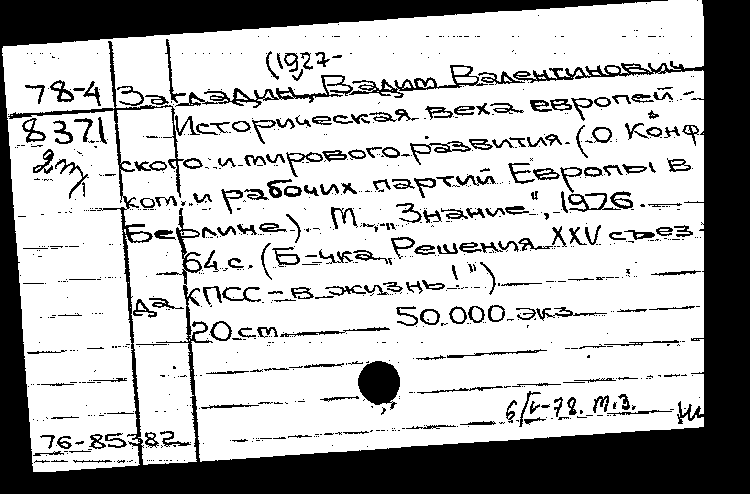 (1927-
78-4 Загладин, Вадим Валентинович
8371 Историческая веха европей-
2m ского и мирового развития. (О Конф.
ком. и рабочих партий Европы в
Берлине). М., „Знание", 1976.
64 с. (Б-чка „Решения XXV съез-
да КПСС - в жизнь!")
20 см 50.000 экз.
6/V-78. т.з.
76-85382